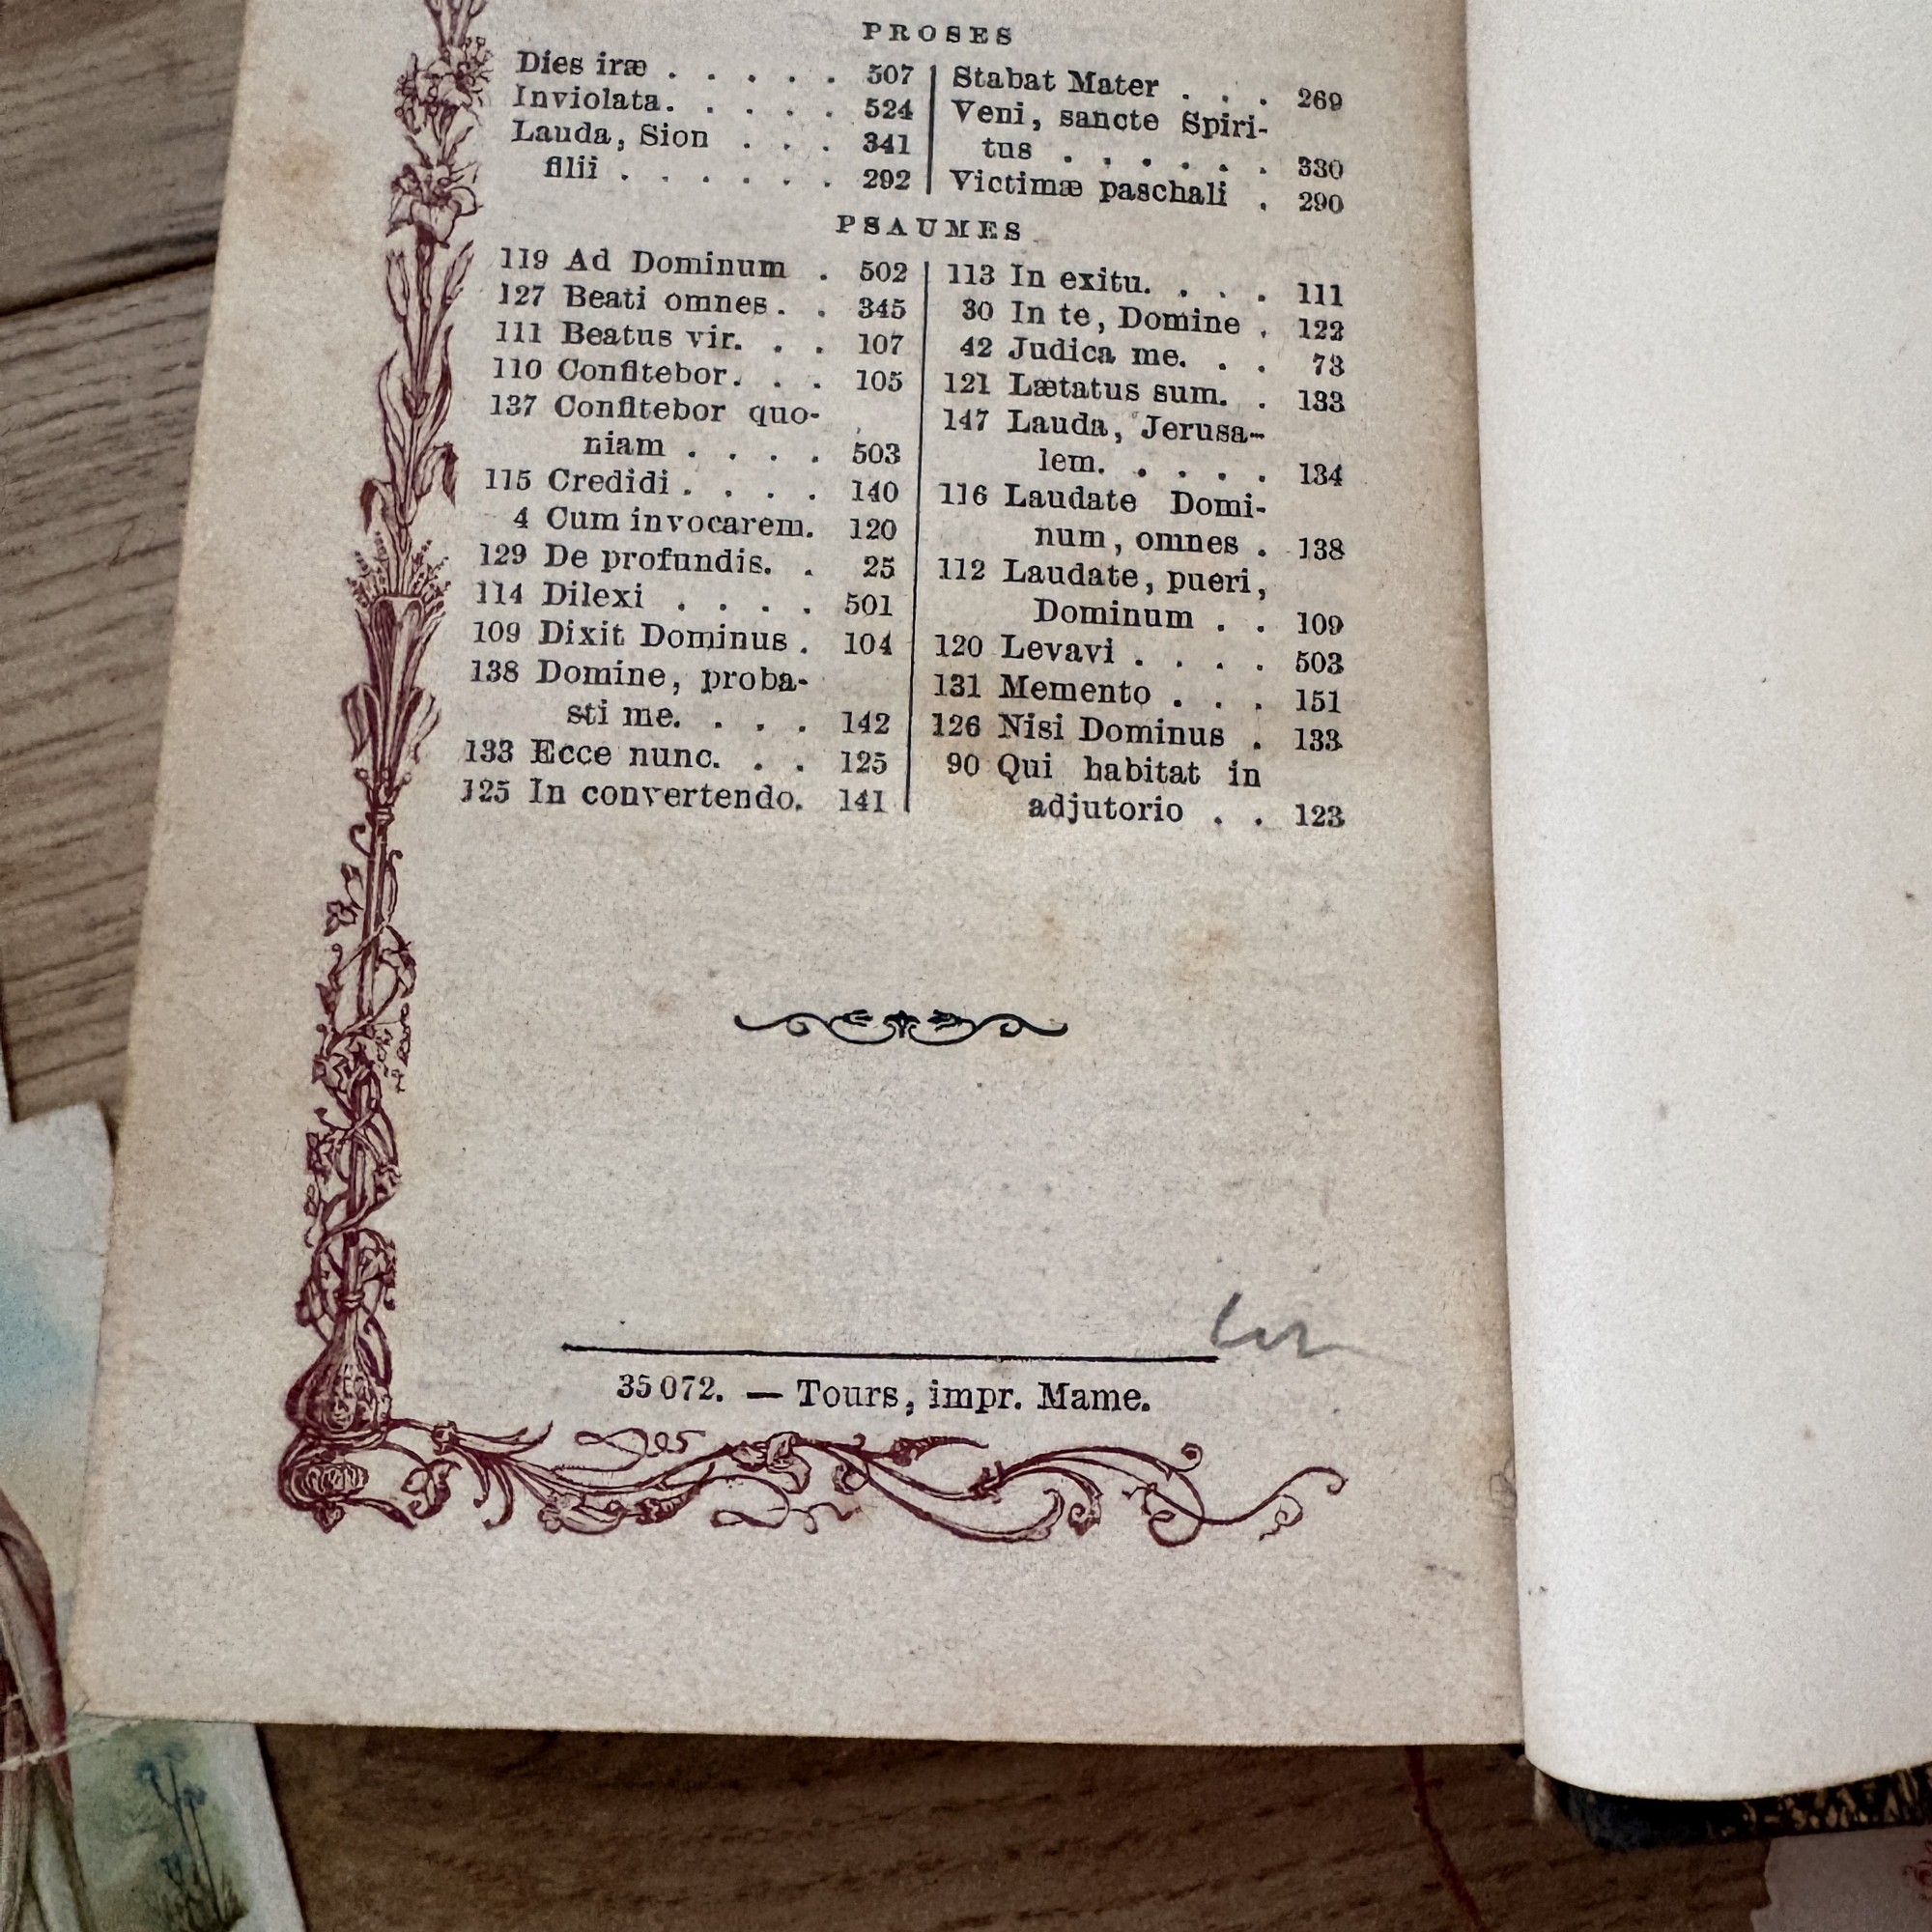 PROSES
Dies iræ . . . . . 507
Inviolata. . . . . 524
Lauda, Sion . . . 341
filii . . . . . . 292
Stabat Mater . . . 269
Veni, sancte Spiri-
tus . . . . . . 330
Victimæ paschali . 290
PSAUMES
119 Ad Dominum . 502
127 Beati omnes . . 345
111 Beatus vir. . . 107
110 Confitebor. . . 105
137 Confitebor quo-
niam . . . . 503
115 Credidi . . . . 140
4 Cum invocarem. 120
129 De profundis. . 25
114 Dilexi . . . . 501
109 Dixit Dominus . 104
138 Domine, proba-
sti me. . . . 142
133 Ecce nunc. . . 125
125 In convertendo. 141
113 In exitu. . . . 111
30 In te, Domine . 122
42 Judica me. . . 73
121 Lætatus sum. . 133
147 Lauda, Jerusa-
lem. . . . . 134
116 Laudate Domi-
num, omnes . 138
112 Laudate, pueri,
Dominum . . 109
120 Levavi . . . . 503
131 Memento . . . 151
126 Nisi Dominus . 133
90 Qui habitat in
adjutorio . . 123
35 072. — Tours, impr. Mame.